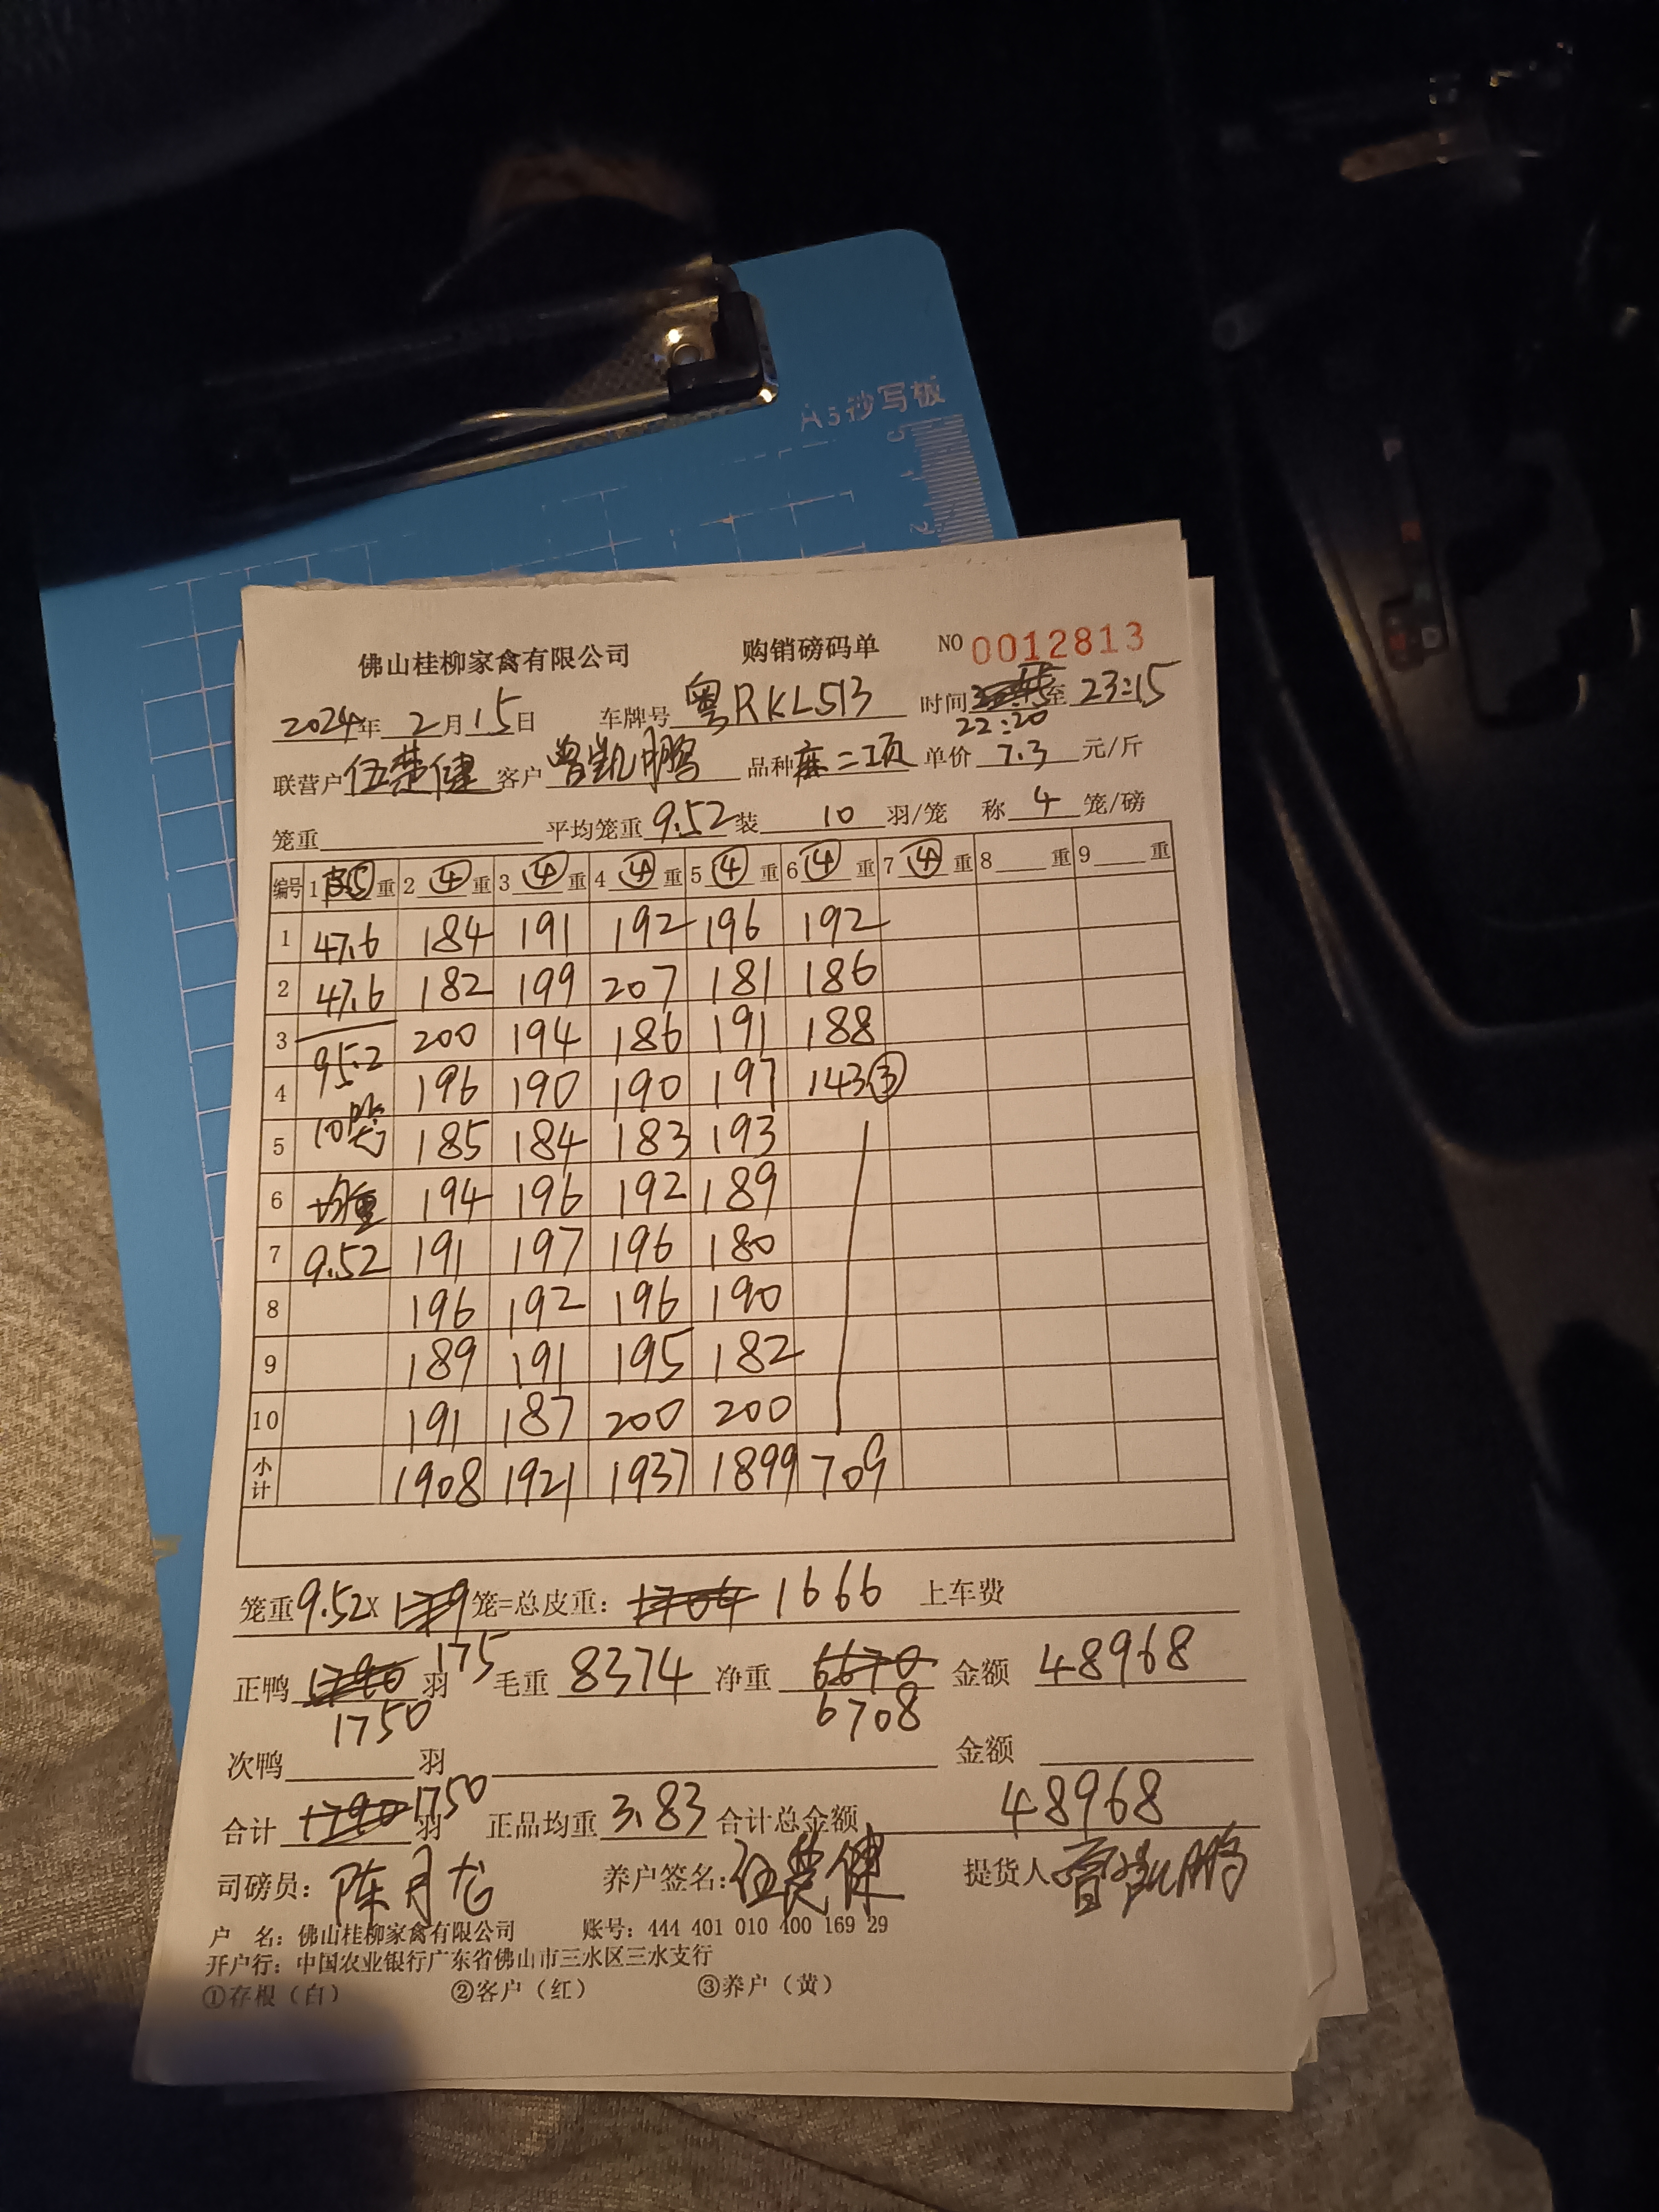 A5抄写板
佛山桂柳家禽有限公司 购销磅码单 NO 0012813
2024年 2月15日 车牌号 粤RKL513 时间 22:20 至 23:15
联营户 伍楚健 客户 曾凯鹏 品种 麻二项 单价 7.3 元/斤
笼重 平均笼重 9.52 装 10 羽/笼 称 4 笼/磅
编号 1 ⑤ 重 2 ④ 重 3 ④ 重 4 ④ 重 5 ④ 重 6 ④ 重 7 ④ 重 8 重 9 重
1 47.6 184 191 192 196 192
2 47.6 182 199 207 181 186
3 95.2 200 194 186 191 188
4 10笼 196 190 190 197 143③
5 185 184 183 193
6 均重 194 196 192 189
7 9.52 191 197 196 180
8 196 192 196 190
9 189 191 195 182
10 191 187 200 200
小计 1908 1921 1937 1899 709
笼重 9.52 X 179 笼=总皮重: 1704 1666 上车费
175
正鸭 1790 羽 毛重 8374 净重 6670 金额 48968
1750 6708
次鸭 羽 金额
合计 1790 1750 羽 正品均重 3.83 合计总金额 48968
司磅员: 陈月龙 养户签名: 伍楚健 提货人 曾凯鹏
户 名: 佛山桂柳家禽有限公司 账号: 444 401 010 400 169 29
开户行: 中国农业银行广东省佛山市三水区三水支行
①存根（白） ②客户（红） ③养户（黄）